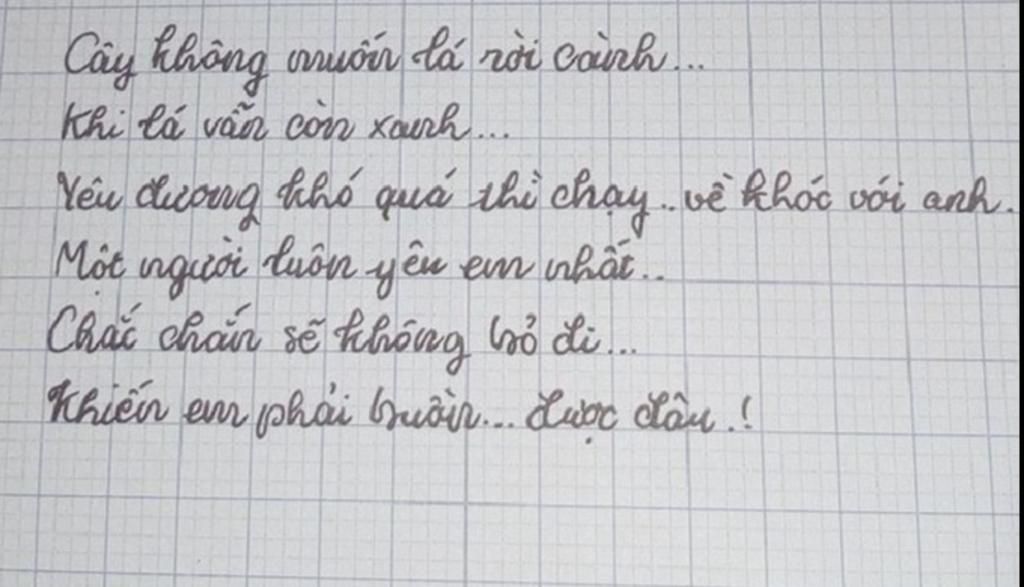 Cây không muốn lá rời cành...
Khi lá vẫn còn xanh...
Yêu đương khó quá thì chạy.. về khóc với anh.
Một người luôn yêu em nhất..
Chắc chắn sẽ không bỏ đi...
Khiến em phải buồn... được đâu.!